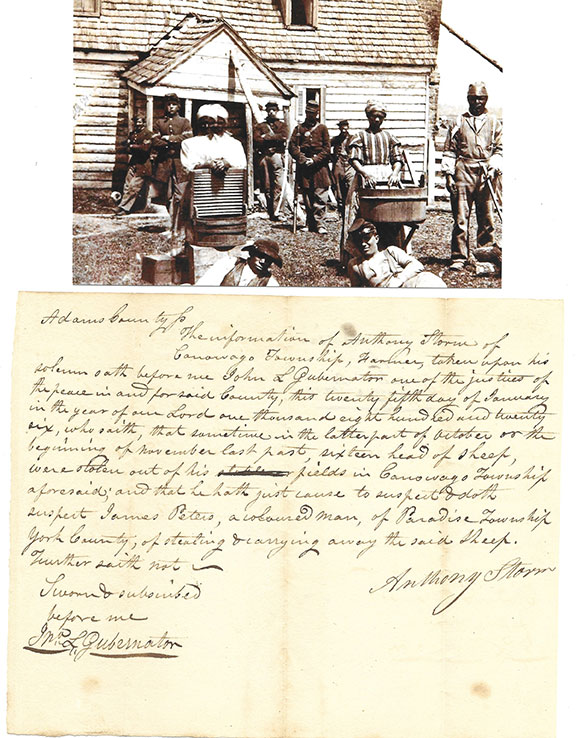 Adams County Ss
The information of Anthony Storm of
Conowago Township, Farmer, taken upon his
solemn oath before me John L Gubernator one of the justices of
the peace in and for said County, this twenty fifth day of January
in the year of our Lord one thousand eight hundred and twenty
six, who saith, that sometime in the latter part of october or the
beginning of november last past, sixteen head of sheep,
were stolen out of his fields in Conowago Township
aforesaid; and that he hath just cause to suspect & doth
suspect James Peters, a coloured man, of Paradise Township
York County, of stealing & carrying away the said Sheep.
Further saith not
Anthony Storm
Sworn & subscribed
before me
Jno. L Gubernator